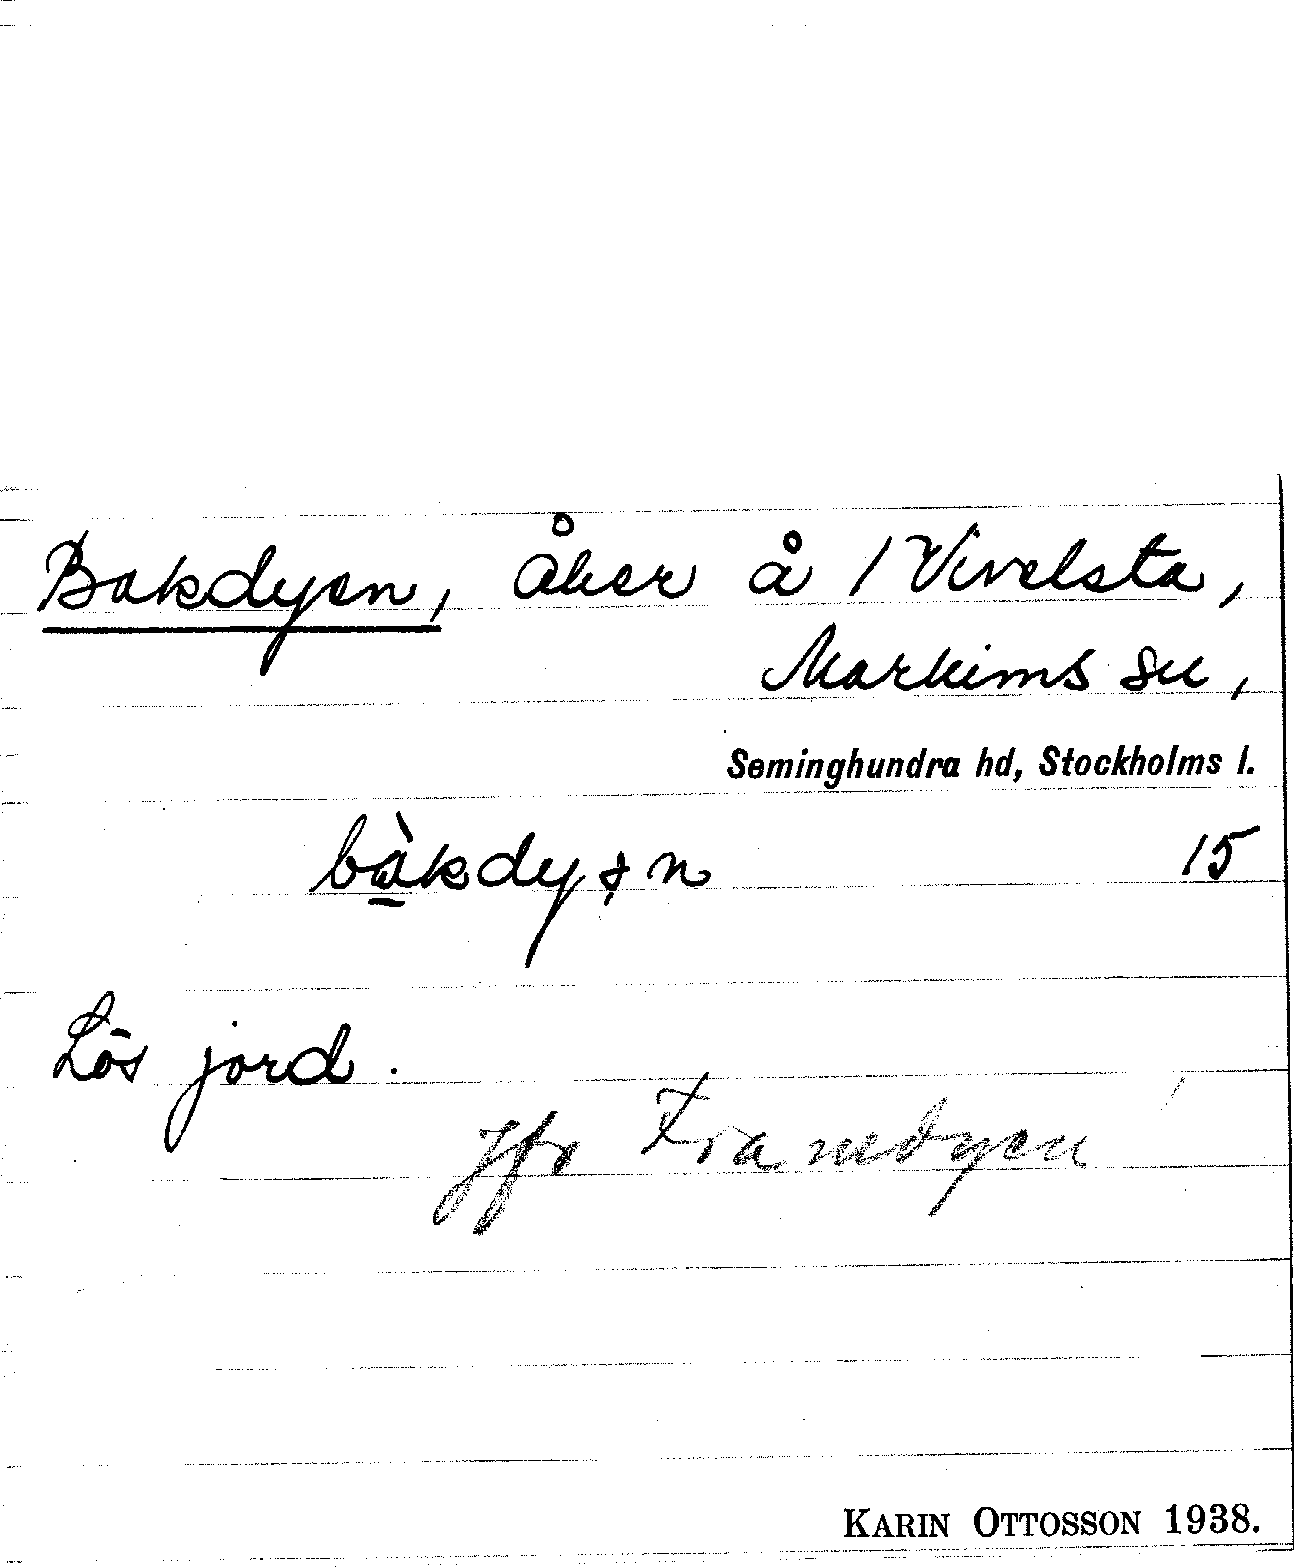 Bakdyen, åker å 1 Vivelsta,
Markims sn,
Seminghundra hd, Stockholms l.
15
Lös jord.
Jfr Framdyen
KARIN OTTOSSON 1938.